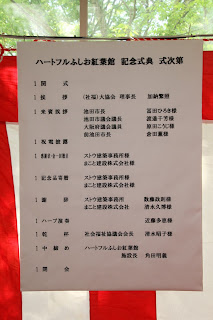 ハートフルふしお紅葉館 記念式典 式次第
1 開 式
1 挨 拶 (社福)大協会 理事長 加納繁照
1 来賓挨拶 池田市長 冨田ひろき様
池田市議会議長 渡邉千芳様
大阪府議会議員 原田こうじ様
前池田市長 倉田薫様
1 祝電披露
ストウ建築事務所様
まこと建設株式会社様
1 記念品贈呈 ストウ建築事務所様
まこと建設株式会社様
1 謝 辞 ストウ建築事務所 数藤政則様
まこと建設株式会社 清水久博様
1 ハープ演奏 近藤多恵様
1 乾 杯 社会福祉協議会会長 清水昭子様
1 中締め ハートフルふしお紅葉館
施設長 角田明義
1 閉 会